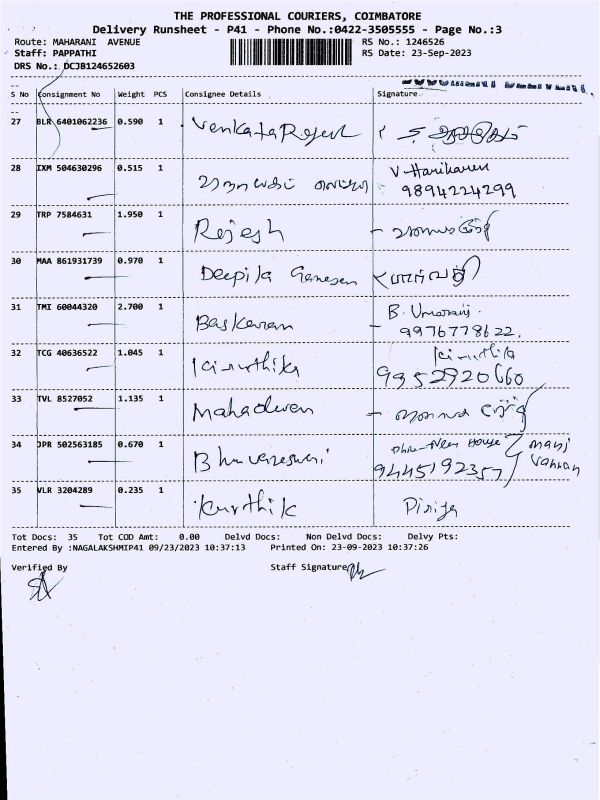 THE PROFESSIONAL COURIERS, COIMBATORE
Delivery Runsheet - P41 - Phone No.:0422-3505555 - Page No.:3
Route: MAHARANI AVENUE RS No.: 1246526
Staff: PAPPATHI RS Date: 23-Sep-2023
DRS No.: DCJB124652603
S No Consignment No Weight PCS Consignee Details Signature
27 BLR 6401062236 0.590 1
28 IXM 504630296 0.515 1 V. Hariharan
9894224299
29 TRP 7584631 1.950 1 Rajesh
30 MAA 861931739 0.970 1 Deepika Ganesan
31 TMI 60044320 2.700 1 Baskaran B.
9976778622.
32 TCG 40636522 1.045 1 Kiruthika Kiruthika
9952920660
33 TVL 8527052 1.135 1 Mahadevan
34 JPR 502563185 0.670 1 Bhuvaneswari House
9445192357
35 VLR 3204289 0.235 1 Karthik
Tot Docs: 35 Tot COD Amt: 0.00 Delvd Docs: Non Delvd Docs: Delvy Pts:
Entered By :NAGALAKSHMIP41 09/23/2023 10:37:13 Printed On: 23-09-2023 10:37:26
Verified By Staff Signature